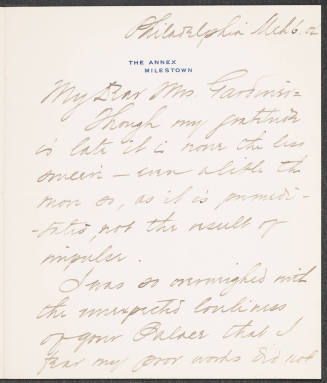 Philadelphia Mch 6. 02
THE ANNEX
MILESTOWN
My Dear Mrs. Gardner=
Though my gratitude
is late it is none the less
sincere – even a little the
more so, as it is premedi-
-tated, not the result of
impulse.
I was so overweighed with
the unexpected loveliness
of your Palace that I
fear my poor words did not